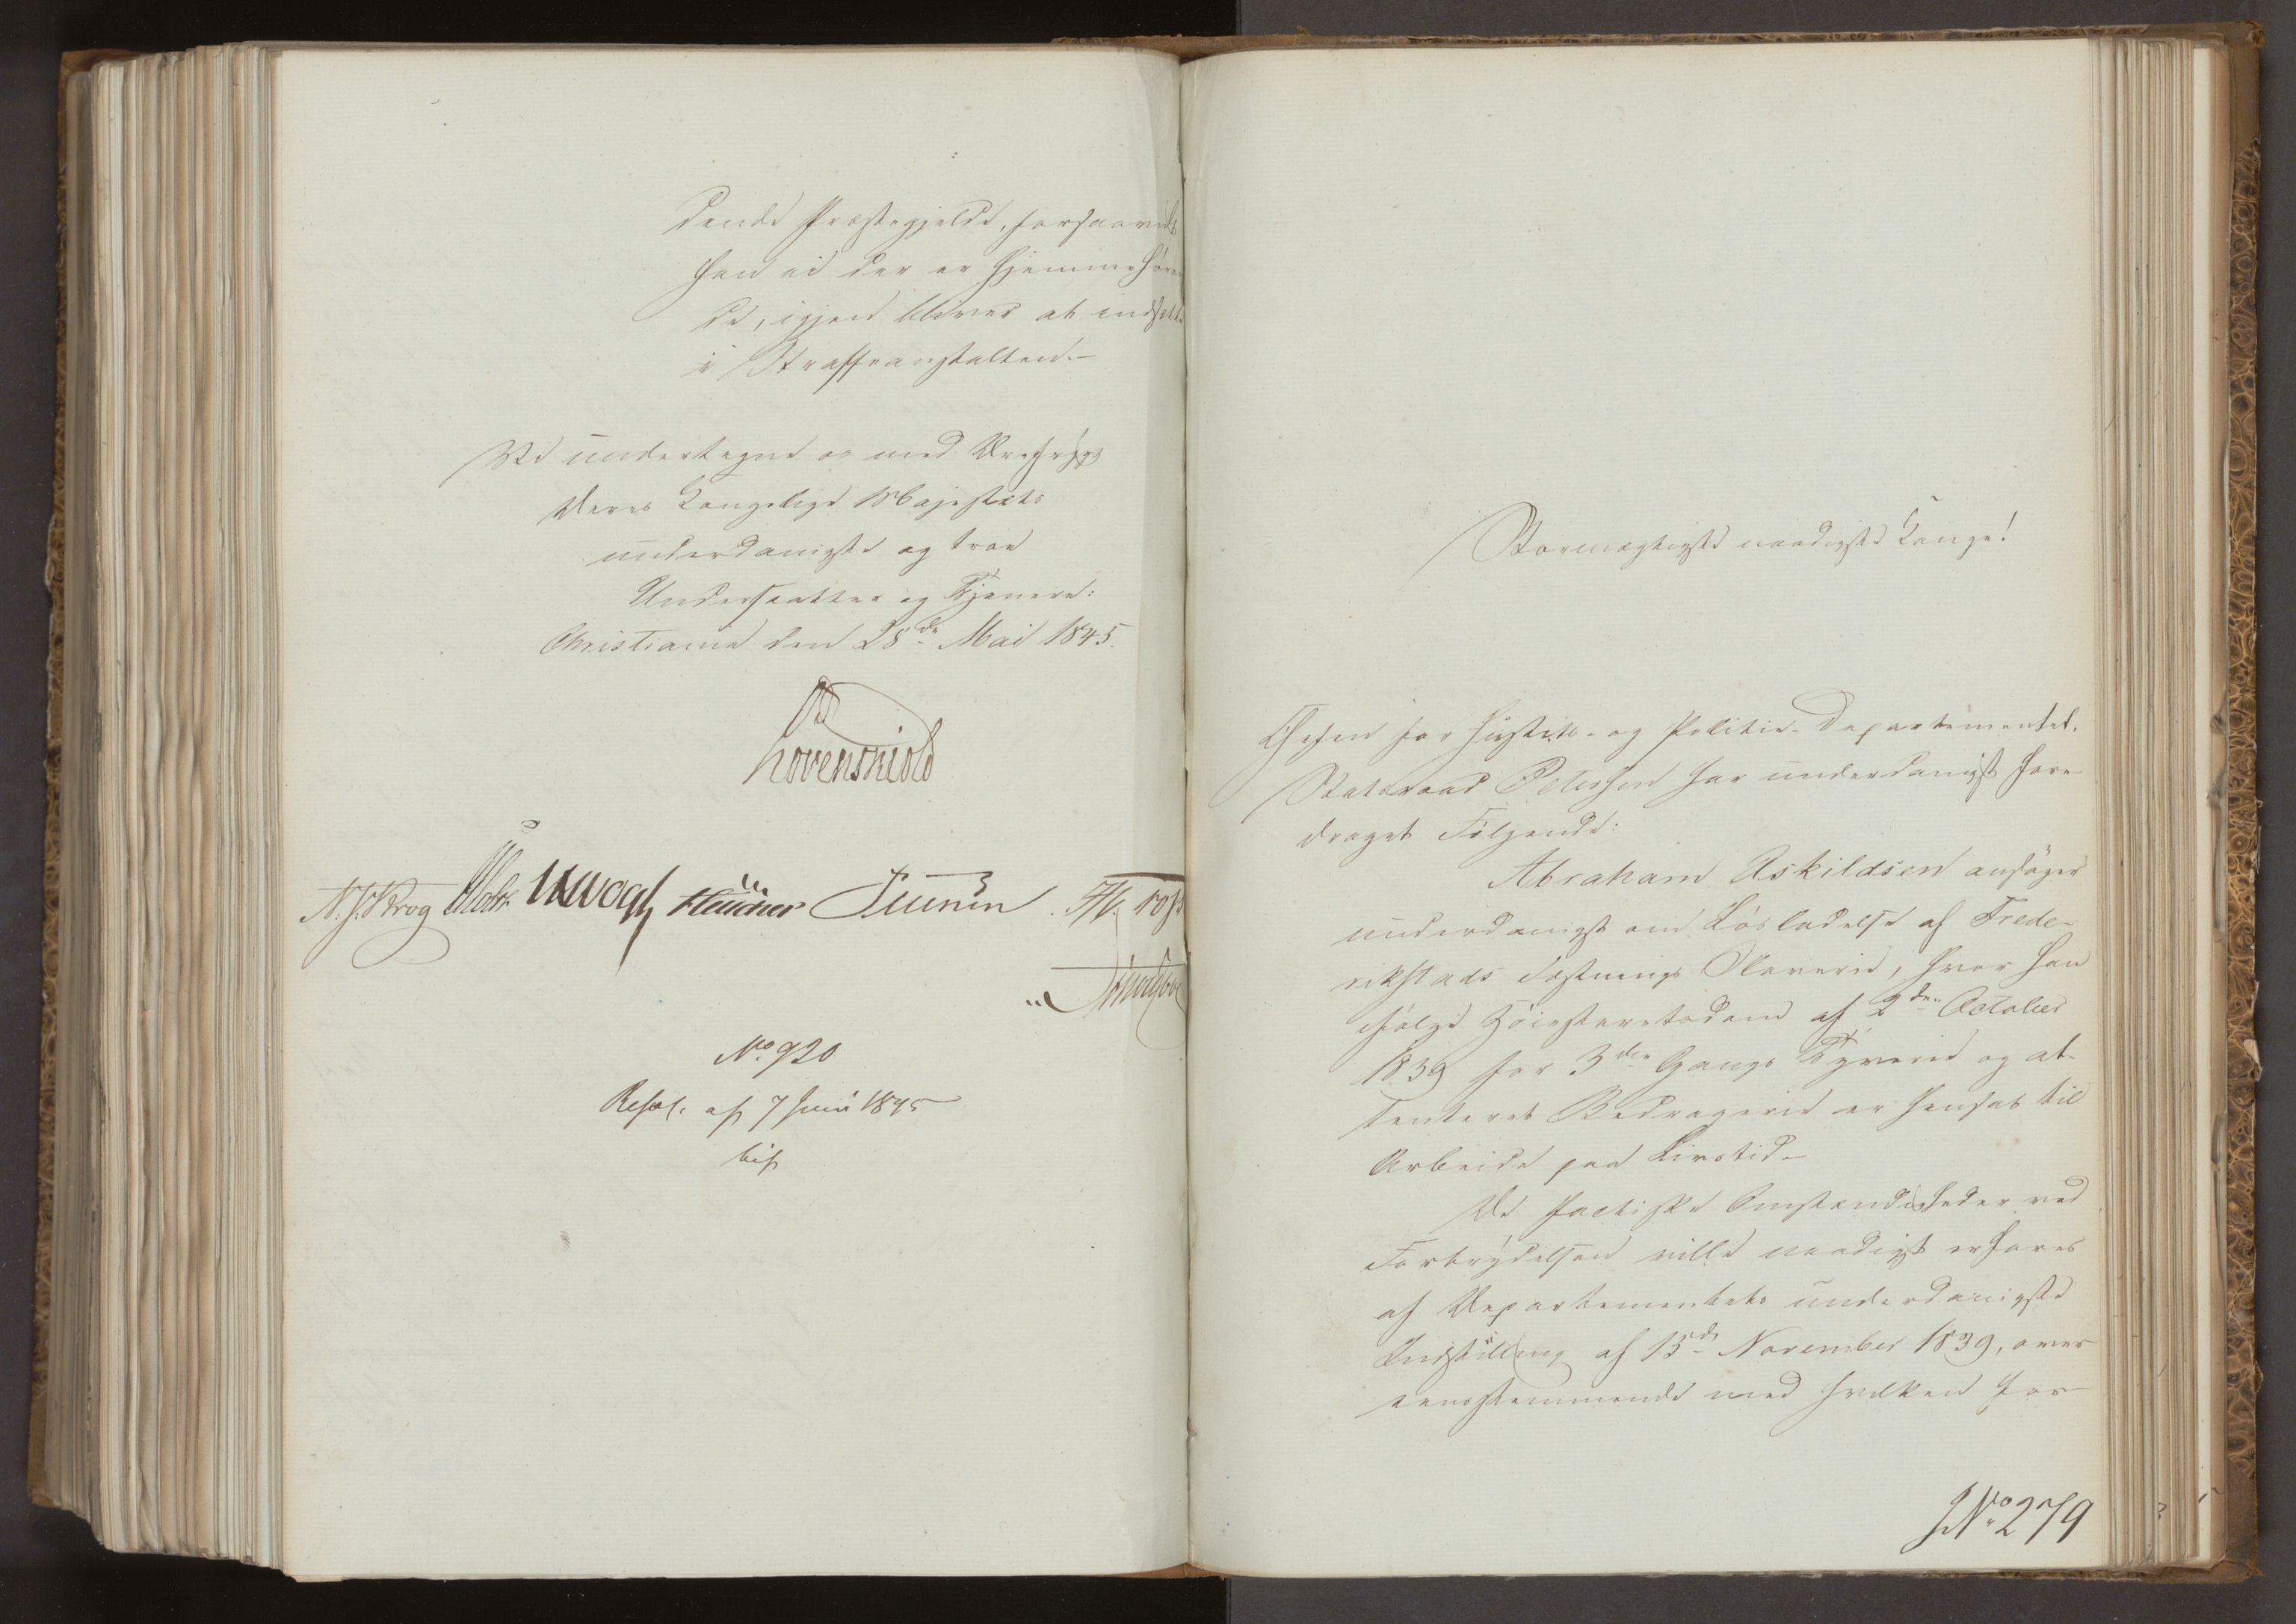 dende Præstegjeld, forsaavidt
han ei der er hjemmehøren
de, igjen bliver at indsætte
i Straffeanstalten.-
Vi undertegne os med Ærefrygt
Deres Kongelige Majestæts
underdanigste og troe
Undersaatter og Tjenere:
Christiania den 28de Mai 1845.
Løvenskiold
N. J. Krog Vogt
No. 920
Resol. af 7 Juni 1845
bif
Stormægtigste naadigste Konge!
Chefen for Justits- og Politie-Departementet,
Statsraad Petersen har underdanigst fore-
draget Følgende:
Abraham Askildsen ansøger
underdanigst om Løsladelse af Frede-
rikstads Fæstnings Slaverie, hvor han
ifølge Høiesteretsdom af 2den October
1839 for 3die Gangs Tyverie og at-
tenteret Bedragerie er hensat til
Arbeide paa Livstid-
De factiske Omstændigheder ved
Forbrydelsen ville naadigst erfares
af Departementets underdanigste
Indstilling af 15de November 1839, over
eensstemmende med hvilken For-
J.No. 279